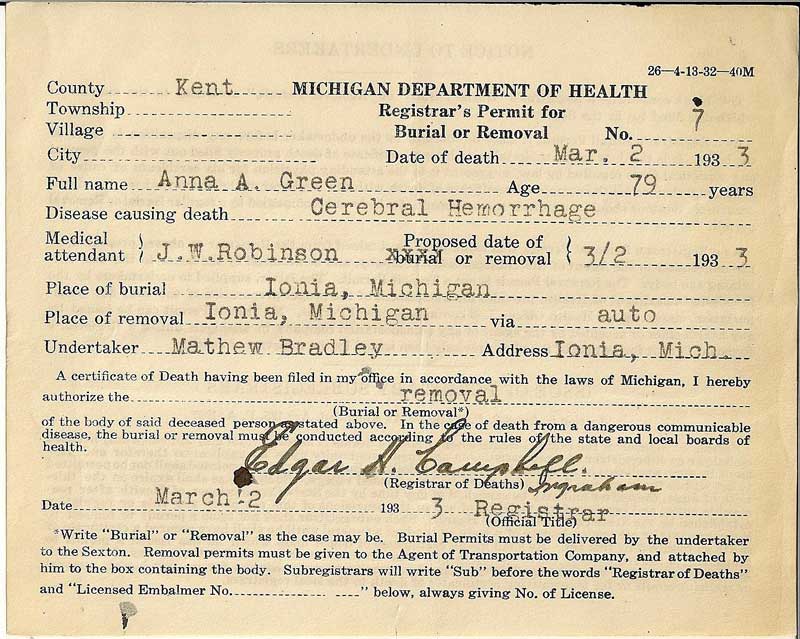 26—4-13-32—40M
County Kent MICHIGAN DEPARTMENT OF HEALTH
Township Registrar's Permit for
Village Burial or Removal No. 7
City Date of death Mar. 2 1933
Full name Anna A. Green Age 79 years
Disease causing death Cerebral Hemorrhage
Medical attendant J.W.Robinson Proposed date of burial or removal 3/2 1933
Place of burial Ionia, Michigan
Place of removal Ionia, Michigan via auto
Undertaker Mathew Bradley Address Ionia, Mich.
A certificate of Death having been filed in my office in accordance with the laws of Michigan, I hereby
authorize the removal
(Burial or Removal*)
of the body of said deceased person as stated above. In the case of death from a dangerous communicable
disease, the burial or removal must be conducted according to the rules of the state and local boards of
health.
Edgar H. Campbell.
(Registrar of Deaths) Ingraham
Date March 2 1933 Registrar
(Official Title)
*Write "Burial" or "Removal" as the case may be. Burial Permits must be delivered by the undertaker
to the Sexton. Removal permits must be given to the Agent of Transportation Company, and attached by
him to the box containing the body. Subregistrars will write "Sub" before the words "Registrar of Deaths"
and "Licensed Embalmer No. " below, always giving No. of License.